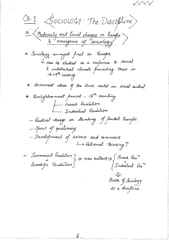 Ch-1 SOCIOLOGY: The Discipline
Modernity and Social changes in Europe
& "emergence of "sociology"
Sociology emerged first in Europe
Can be studied as a response to social
& intellectual climate prevailing there in
18-19th century
Dominant ideas of the time rested on social context
Enlightenment period - 18th century
French Revolution
Industrial Revolution
- Radical change in thinking of feudal Europe
- Spirit of questioning
- Development of science and commerce
Rational Thinking ↑
- Commercial Revolution
Scientific Revolution
a new outlook
French Revn
Industrial Revn
Birth of Sociology
as a discipline